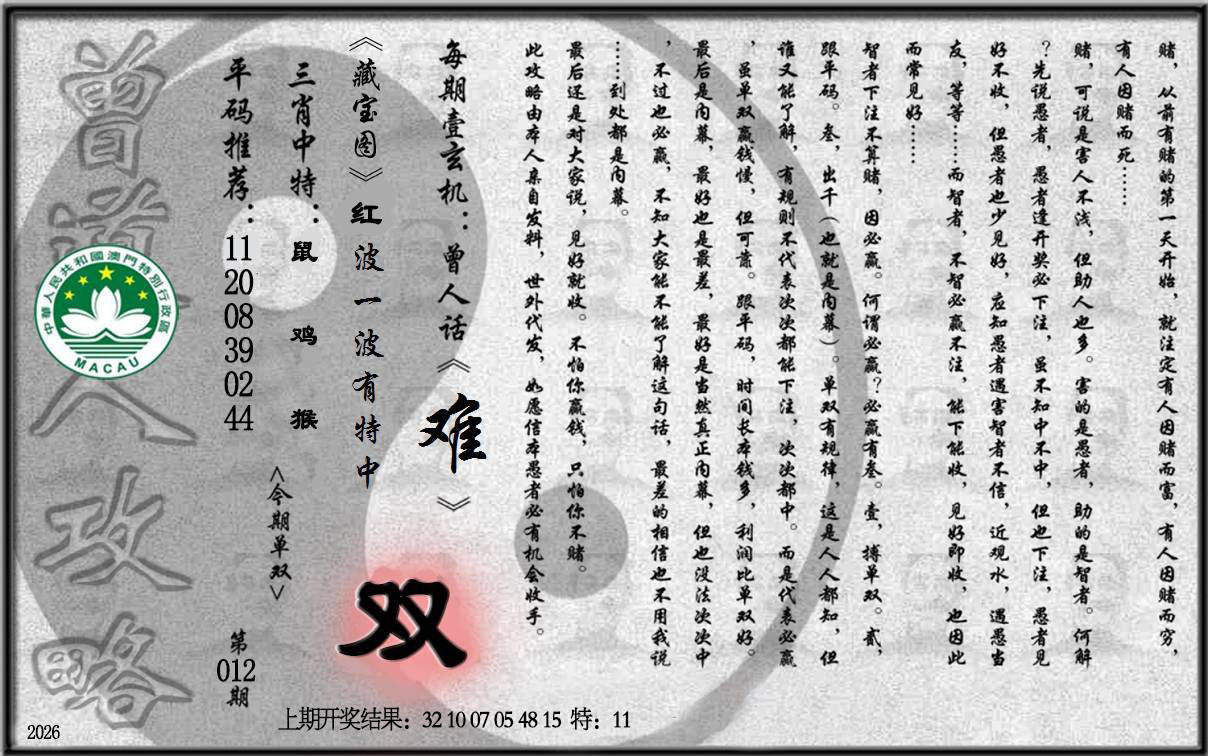 赌，从前有赌的第一天开始，就注定有人因赌而富，有人因赌而穷，
有人因赌而死……
赌，可说是害人不浅，但助人也多。害的是愚者，助的是智者。何解
？先说愚者，愚者逢开奖必下注，虽不知中不中，但也下注，愚者见
好不收，但愚者也少见好，应知愚者遇害智者不信，近观水，遇愚当
友，等等……而智者，不智必赢不注，能下能收，见好即收，也因此
而常见好……
智者下注不算赌，因必赢。何谓必赢？必赢有叁。壹，搏单双。贰，
跟平码。叁，出千（也就是内幕）。单双有规律，这是人人都知，但
谁又能了解，有规则不代表次次都能下注，次次都中。而是代表必赢
，虽单双赢钱慢，但可靠。跟平码，时间长本钱多，利润比单双好。
最后是内幕，最好也是最差，最好是当然真正内幕，但也没法次次中
，不过也必赢，不知大家能不能了解这句话，最差的相信也不用我说
……到处都是内幕。
最后还是对大家说，见好就收。不怕你赢钱，只怕你不赌。
此攻略由本人亲自发料，世外代发，如愿信本愚者必有机会收手。
每期壹玄机：曾人话《难》
《藏宝图》红波一波有特中
双
三肖中特：鼠 鸡 猴
<今期单双>
平码推荐：11 20 08 39 02 44
第012期
曾道人攻略
中華人民共和國澳門特別行政區
MACAU
上期开奖结果：32 10 07 05 48 15 特：11
2026